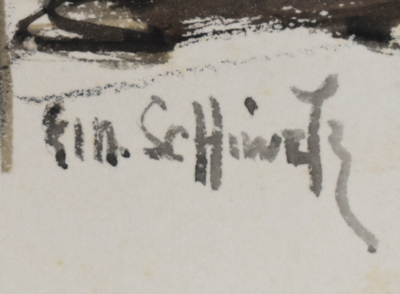 Em. Schiwetz